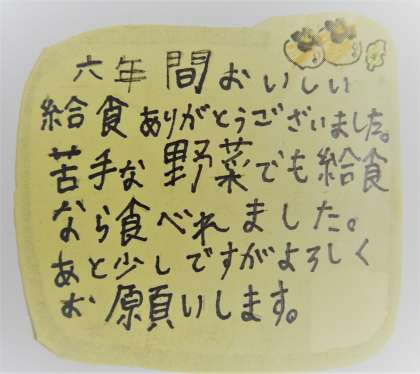 六年間おいしい
給食ありがとうございました。
苦手な野菜でも給食
なら食べれました。
あと少しですがよろしく
お願いします。